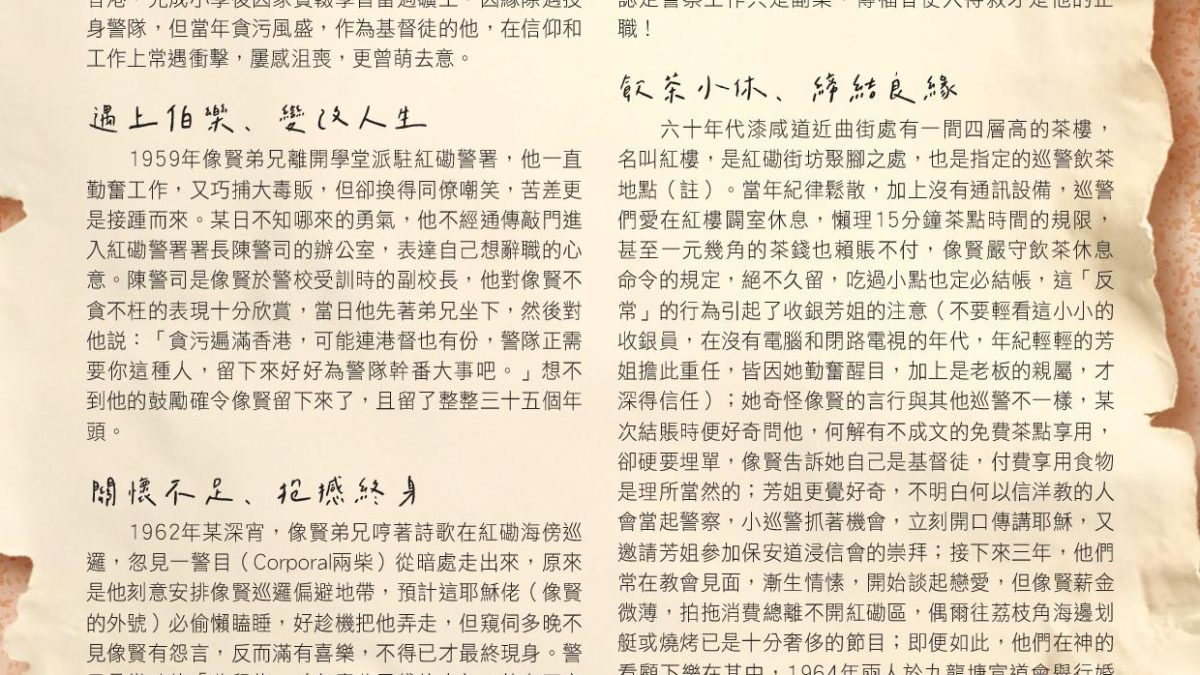 香港，完成小學後因家貧輟學曾當過礦工，因緣際遇投
身警隊，但當年貪污風盛，作為基督徒的他，在信仰和
工作上常遇衝擊，屢感沮喪，更曾萌去意。
遇上伯樂、變改人生
1959年像賢弟兄離開學堂派駐紅磡警署，他一直
勤奮工作，又巧捕大毒販，但卻換得同僚嘲笑，苦差更
是接踵而來。某日不知哪來的勇氣，他不經通傳敲門進
入紅磡警署署長陳警司的辦公室，表達自己想辭職的心
意。陳警司是像賢於警校受訓時的副校長，他對像賢不
貪不枉的表現十分欣賞，當日他先著弟兄坐下，然後對
他説：「貪污遍滿香港，可能連港督也有份，警隊正需
要你這種人，留下來好好為警隊幹番大事吧。」想不
到他的鼓勵確令像賢留下來了，且留了整整三十五個年
頭。
關懷不足、抱撼終身
1962年某深宵，像賢弟兄哼著詩歌在紅磡海傍巡
邏，忽見一警目（Corporal兩柴）從暗處走出來，原來
是他刻意安排像賢巡邏偏避地帶，預計這耶穌佬（像賢
的外號）必偷懶瞌睡，好趁機把他弄走，但窺伺多晚不
見像賢有怨言，反而滿有喜樂，不得已才最終現身。警
認定警察工作只是副業，傳福音使人得救才是他的正
職！
飲茶小休、締結良緣
六十年代漆咸道近曲街處有一間四層高的茶樓，
名叫紅樓，是紅磡街坊聚腳之處，也是指定的巡警飲茶
地點（註）。當年紀律鬆散，加上沒有通訊設備，巡警
們愛在紅樓闢室休息，懶理15分鐘茶點時間的規限，
甚至一元幾角的茶錢也賴賬不付，像賢嚴守飲茶休息
命令的規定，絕不久留，吃過小點也定必結帳，這「反
常」的行為引起了收銀芳姐的注意（不要輕看這小小的
收銀員，在沒有電腦和閉路電視的年代，年紀輕輕的芳
姐擔此重任，皆因她勤奮醒目，加上是老板的親屬，才
深得信任）；她奇怪像賢的言行與其他巡警不一樣，某
次結賬時便好奇問他，何解有不成文的免費茶點享用，
卻硬要埋單，像賢告訴她自己是基督徒，付費享用食物
是理所當然的；芳姐更覺好奇，不明白何以信洋教的人
會當起警察，小巡警抓著機會，立刻開口傳講耶穌，又
邀請芳姐參加保安道浸信會的崇拜；接下來三年，他們
常在教會見面，漸生情愫，開始談起戀愛，但像賢薪金
微薄，拍拖消費總離不開紅磡區，偶爾往荔枝角海邊划
艇或燒烤已是十分奢侈的節目；即便如此，他們在神的
看顧下樂在其中，1964年兩人於九龍塘宣道會舉行婚